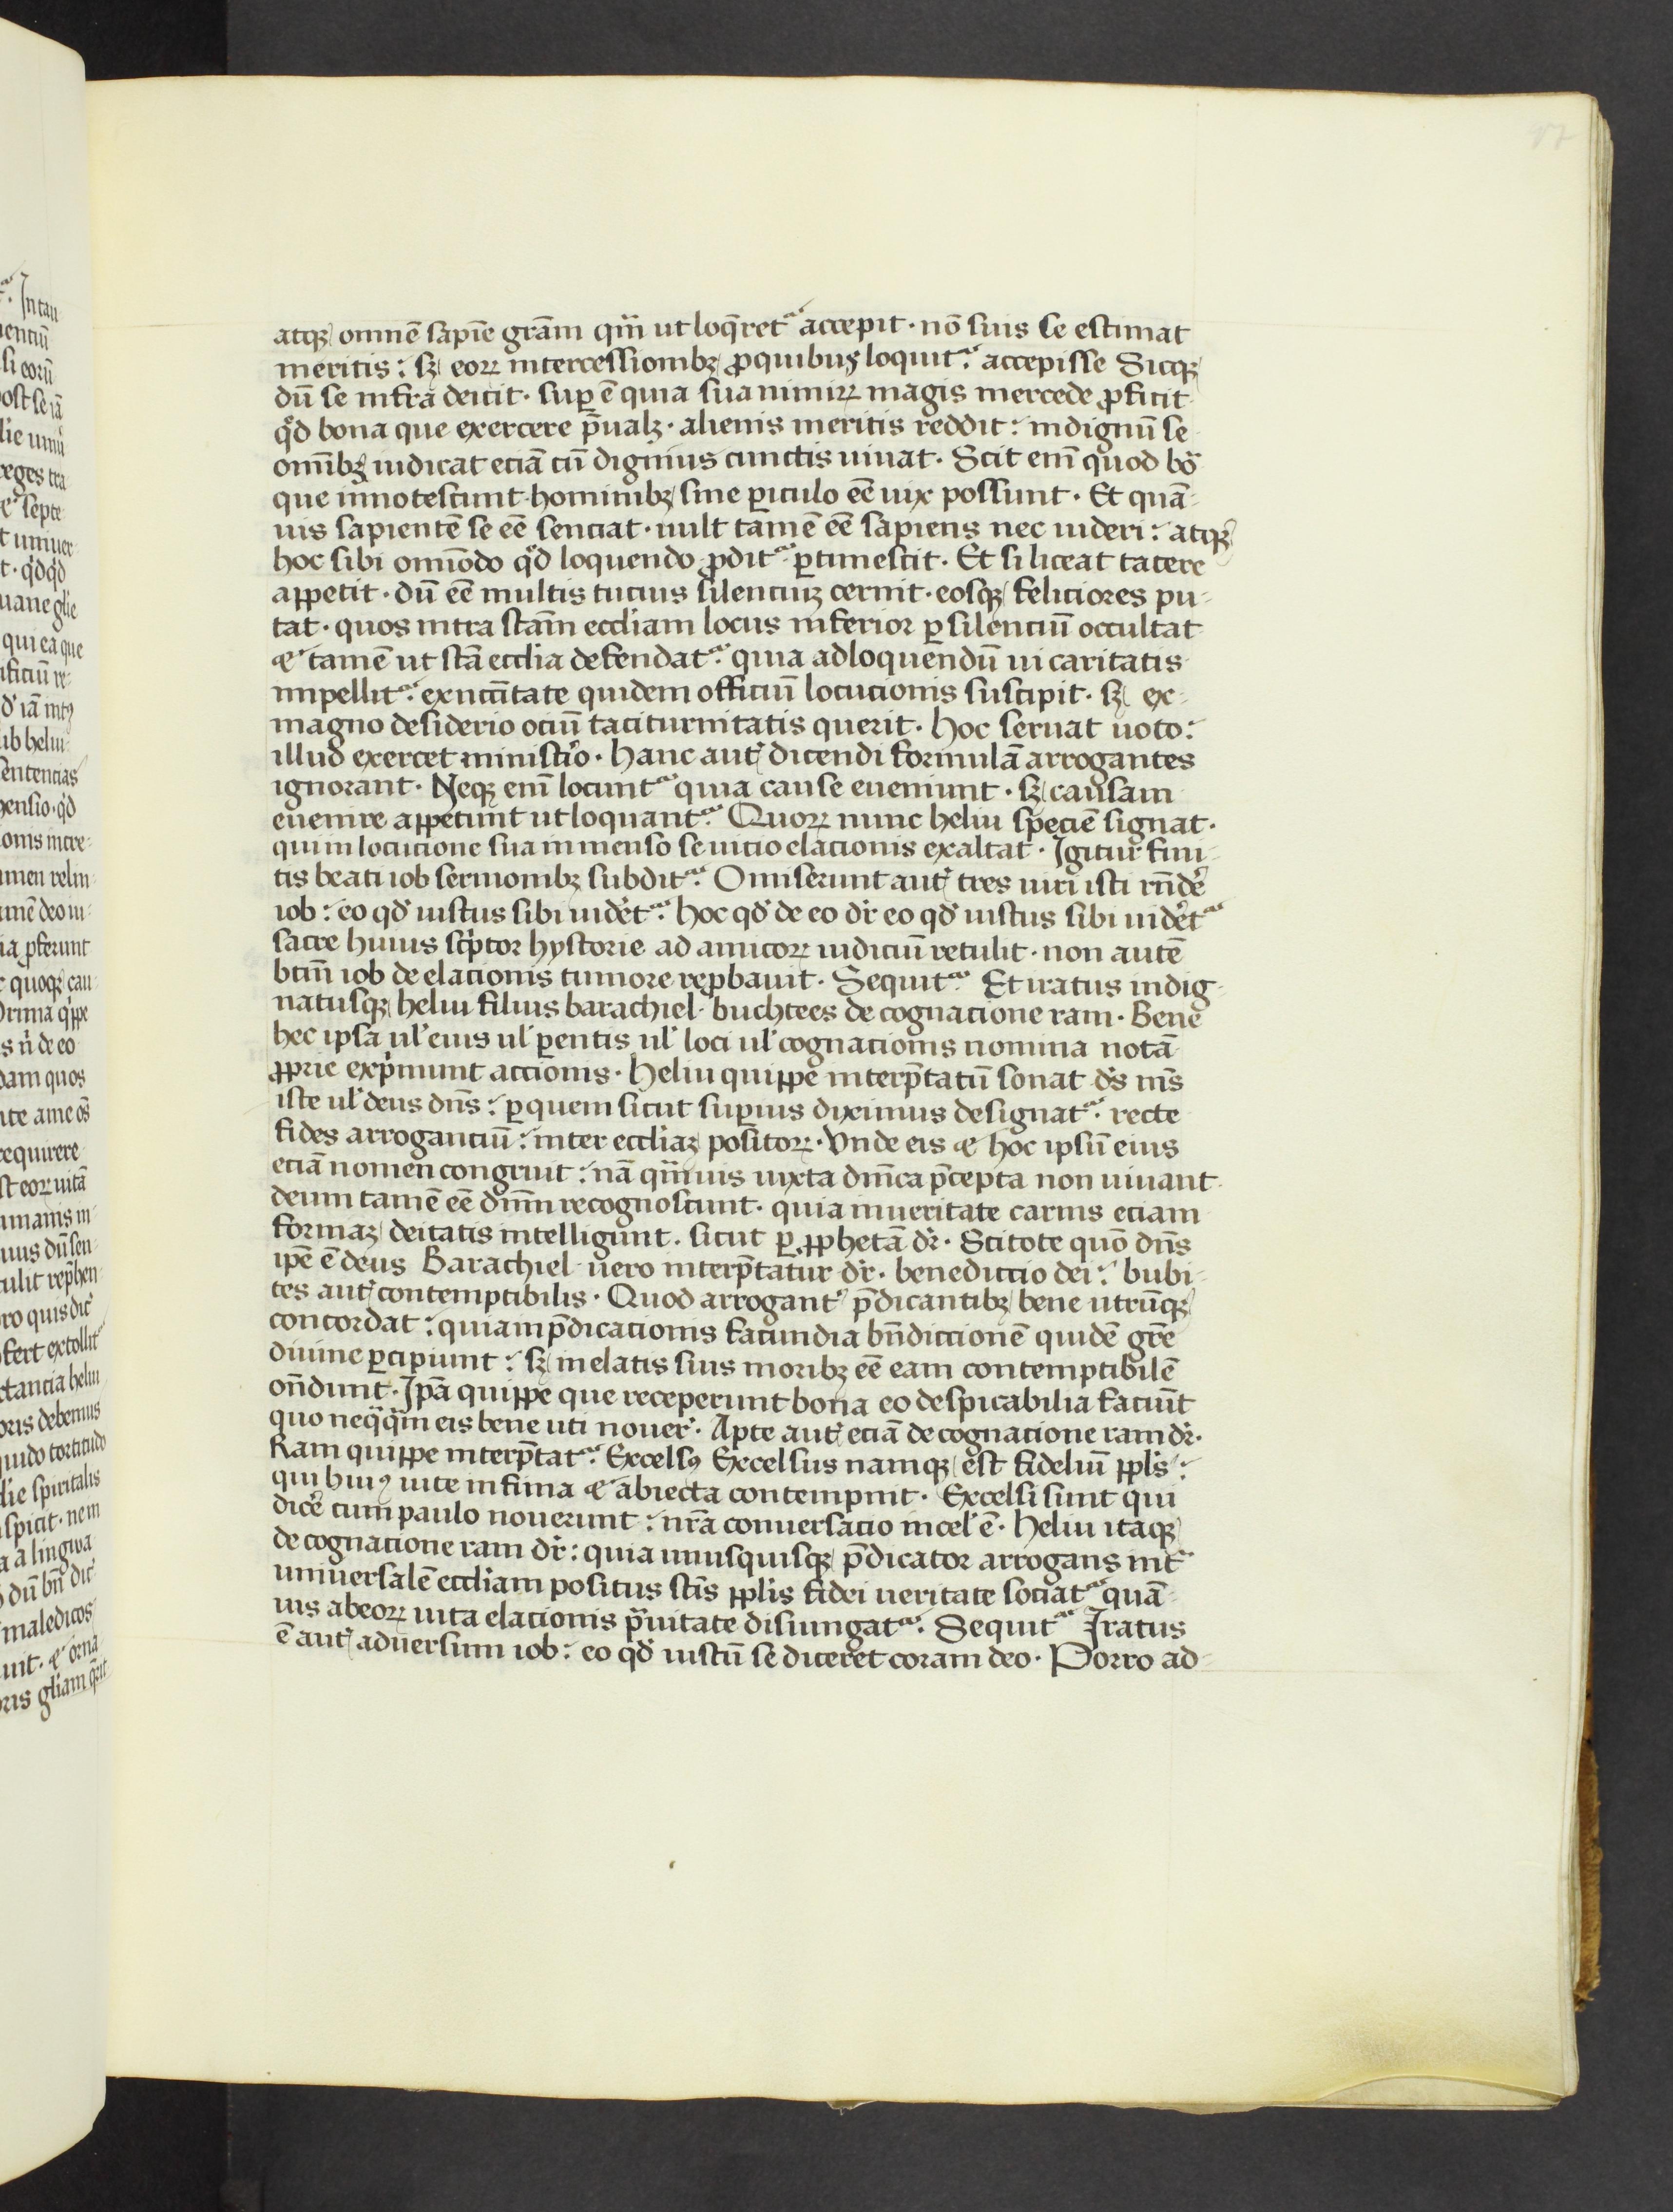 47
atqꝫ omnē sapīe grām qm̄ ut loq̄ret᷑ accepit · nō suis se estimat
meritis : sꝫ eoꝝ intercessionibꝫ ꝓ quibus loquit᷑ accepisse Sicqꝫ
dū se infra deicit · suꝑ ē quia sua nimiꝝ magis mercede ꝓficit
qd̓ bona que exercere p̄ualꝫ · alienis meritis reddit : indignū se
omībꝫ iudicat eciā cū dignius cunctis uiuat · Scit enī quod bo᷑
que innotescunt hominibꝫ sine ꝑiculo eē uix possunt · Et quā-
uis sapientē se eē senciat · uult tamē eē sapiens nec uideri : atqꝫ
hoc sibi omīodo qd̓ loquendo ꝓdit᷑ ꝑtimescit · Et si liceat tacere
appetit · dū eē multis tucius silenciuꝫ cernit · eosqꝫ feliciores pu-
tat · quos intra sc̄am eccl̓iam locus inferior ꝑ silenciū occultat
⁊ tamē ut sc̄a eccl̓ia defendat᷑ quia ad loquendū ui caritatis
impellit᷑ : ex nccītate quidem officiū locucionis suscipit · sꝫ ex
magno desiderio ociū taciturnitatis querit · hoc seruat uoto :
illud exercet minist̓io · hanc aut̓ dicendi formulā arrogantes
ignorant · Neqꝫ enī locunt᷑ quia cause eueniunt · sꝫ causam
euenire appetunt ut loquant᷑ Quoꝝ nunc heliu speciē signat ·
qui in locucione sua inmenso se uicio elacionis exaltat · Igitur fini-
tis beati iob sermonibꝫ subdit᷑ Omiserunt aut̓ tres uiri isti rn̄de̓
iob : eo qd̓ iustus sibi uide̓t᷑ hoc qd̓ de eo dr̓ eo qd̓ iustus sibi uide̓t᷑
sacre huius sc̓ptor hystorie ad amicoꝝ iudiciū retulit · non autē
btm̄ iob de elacionis tumore reꝓbauit · Sequit᷑ Et iratus indig-
natusqꝫ heliu filius barachiel buchtees de cognacione ram · Bene
hec ipsa ul̓ eius ul̓ ꝑentis ul̓ loci ul̓ cognacionis nomina notā
ꝓprie exp̓munt accionis · heliu quippe interp̄tatū sonat ds̄ ms̄
iste ul̓ deus dn̄s : ꝑ quem sicut suꝑius diximus designat᷑ recte
fides arroganciū : inter eccl̓iaꝫ positoꝝ · Vnde eis ⁊ hoc ipsū eius
eciā nomen congruit : nā qm̄uis iuxta dn̄ica p̄cepta non uiuant
deum tamē eē dn̄m recognoscunt · quia in ueritate carnis eciam
formaꝫ deitatis intelligunt · sicut ꝑ ꝓphetā dr̓ · Scitote quō dn̄s
ipē ē deus Barachiel uero interp̄tatur dr̓ · benediccio dei : bubi-
tes aut̓ contemptibilis · Quod arrogant᷑ p̄dicantibꝫ bene utrūqꝫ
concordat : quia in p̄dicacionis facundia bn̄diccionē quidē gr̄e
diuine ꝑcipiunt : sꝫ in elatis suis moribꝫ eē eam contemptibilē
on̄dunt · Ipā quippe que receperunt bona eo despicabilia faciūt
quo neq̄q̄m eis bene uti nouer̓ · Apte aut̓ eciā de cognacione ram dr̓ ·
Ram quippe interp̄tat᷑ Excelsꝰ Excelsus namqꝫ est fideliū ppl̓s :
qui huiꝰ uite infima ⁊ abiecta contempnit · Excelsi sunt qui
dice̓ cum paulo nouerunt : nr̄a conuersacio in cel̓ ē · heliu itaqꝫ
de cognacione ram dr̓ : quia unusquisqꝫ p̄dicator arrogans int᷑
uniuersalē eccl̓iam positus sc̄is ppl̓is fidei ueritate sociat᷑ quā-
uis ab eoꝝ uita elacionis p̄uitate disiungat᷑ · Sequit᷑ Iratus
ē aut̓ aduersum iob : eo qd̓ iustū se diceret coram deo · Porro ad-